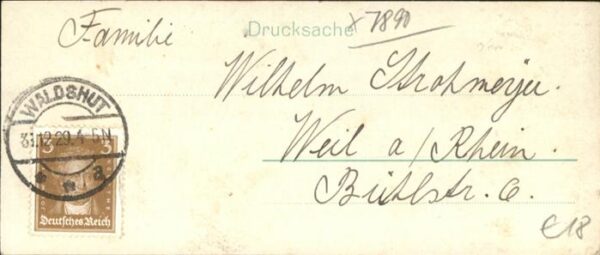 Drucksache
x 7890
Familie
Wilhelm Strohmeyer.
Weil a/Rhein.
Bühlstr. 6.
WALDSHUT
31.12.29. 4-5N
* * a
3 3
Deutsches Reich
€18